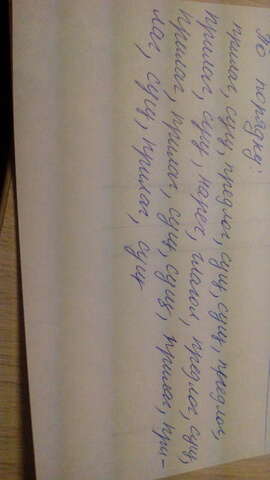 По порядку:
прилаг, сущ, предлог, сущ, сущ, предлог,
прилаг, сущ, нареч, глагол, предлог, сущ,
прилаг, прилаг, сущ, сущ, прилаг, при-
лаг, сущ, прилаг, сущ